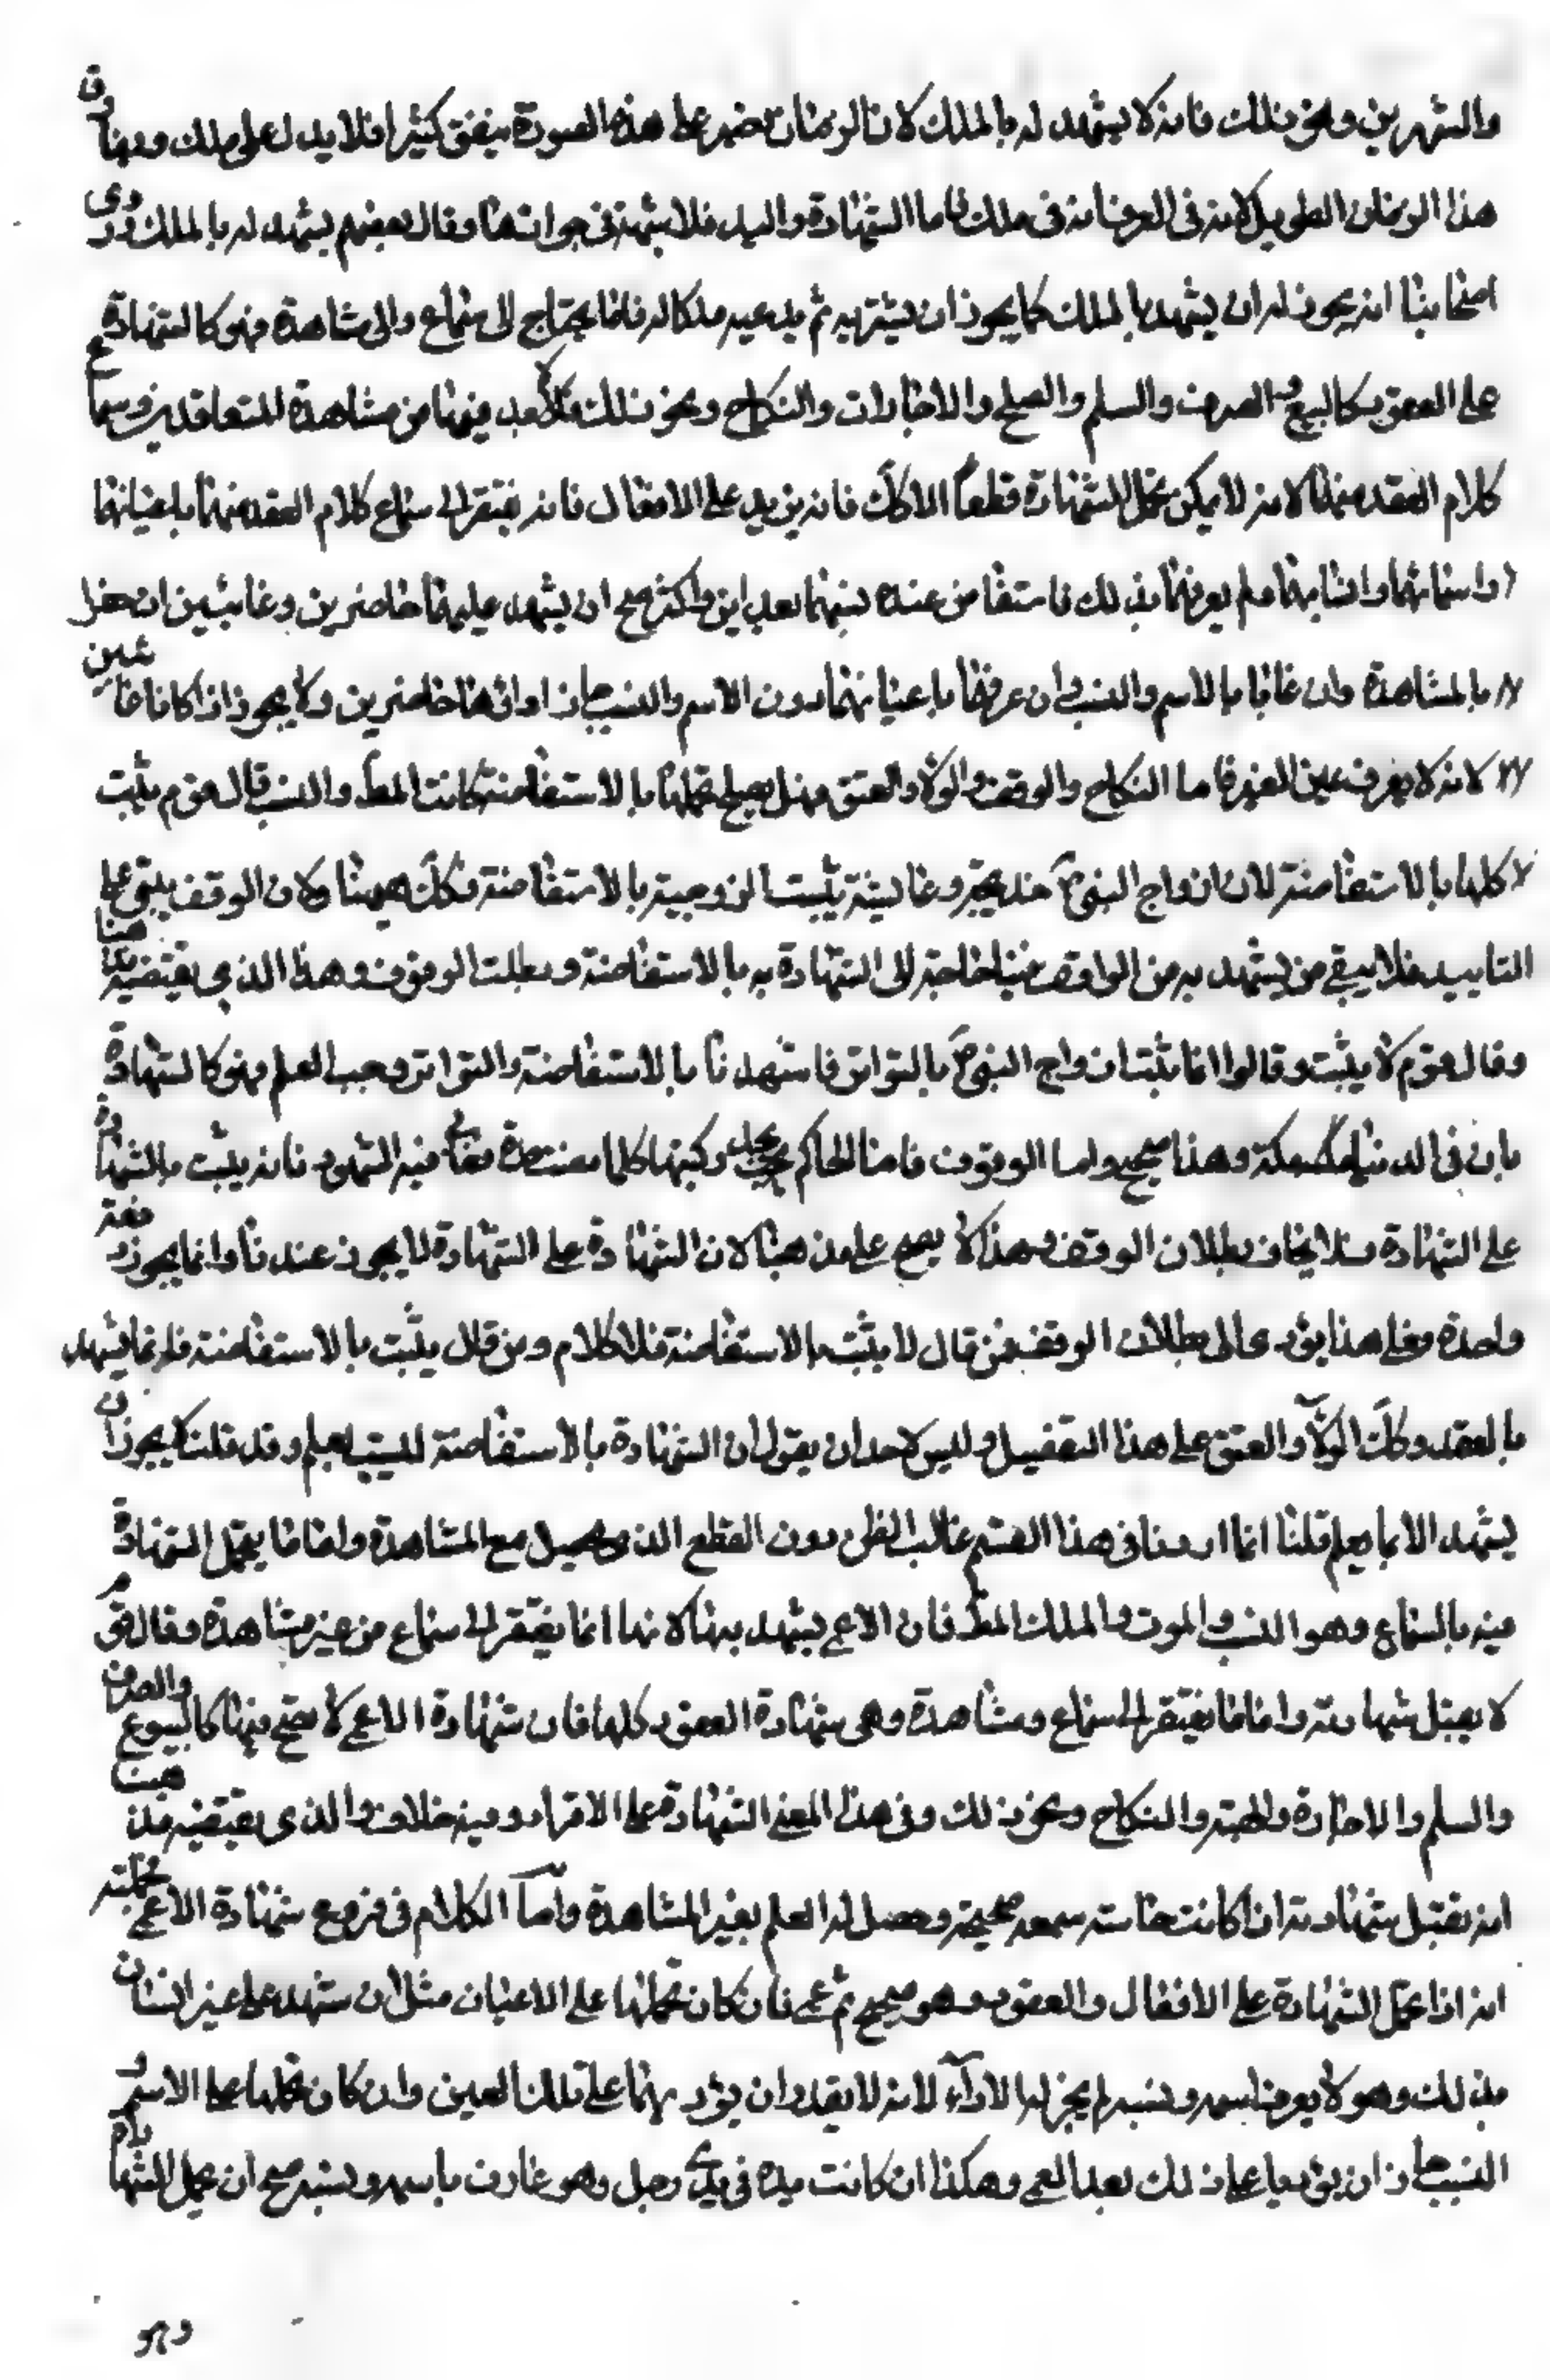 والشهرين ونحو ذلك فانه لا يشهد له بالملك لان الزمان قصير على هذه الصورة يتفق كثيرا فلا يدل على ملك وفارق
هذا الزمان الطويل لانه في العرف انه في ملك فاما الشهادة واليد فلا شبهة في جوازها وقال بعضهم يشهد له بالملك وروى
اصحابنا انه يجوز له ان يشهد بالملك كما يجوز ان يشتريه ثم يدعيه ملكا له فاما ما يحتاج الى سماع والى مشاهدة فهو كالشهادة
على العقود كالبيع والصرف والسلم والصلح والاجارات والنكاح ونحو ذلك فلا بد فيها من مشاهدة المتعاقدين وسماع
كلام العقد منهما لانه لا يمكن تحمل الشهادة قطعا الا كك فانه يزيد على الافعال فانه يفتقر الى سماع كلام العقد منهما باعيانهما
واسمائهما وانسابهما فلم يعرفهما بذلك فاستفاض عنده نسبهما بعدلين واكثر صح ان يشهد عليهما حاضرين وغائبين ان حضرا
بالمشاهدة وان غابا بالاسم والنسب وان عرفهما باعيانهما دون الاسم والنسب جاز اداؤها حاضرين ولا يجوز اذا كانا غائبين
لانه لا يعرف عين الغير فاما النكاح والوقف والولاء والعتق فهل يصح تحملها بالاستفاضة كانت المط والنسب قال قوم يثبت
كلها بالاستفاضة لان ازواج النبي ص خديجة وعايشة يثبت الزوجية بالاستفاضة وكك ههنا ولان الوقف يبقى على
التابيد فلا يبقى من يشهد به من الواقف فبنا حاجة الى الشهادة به بالاستفاضة وبطلت الوقوف وهذا الذي يقتضيه مذهبنا
وقال قوم لا يثبت وقالوا انما يثبت ازواج النبي ص بالتواتر فاستشهدنا بالاستفاضة والتواتر يوجب العلم فهو كالشهادة
بان في الدنيا مكة وهذا صحيح واما الوقوف فامنا الحاكم يجدد وكتبها كلما مضت مدة مات فيه الشهود فانه يثبت بالشهادة
على الشهادة فلا يخاف بطلان الوقف وهذا لا يصح على مذهبنا لان الشهادة على الشهادة لا يجوز عندنا وانما يجوز دفعة
واحدة وعلى هذا يؤدى الى بطلان الوقف فمن قال لا يثبت بالاستفاضة فلا كلام ومن قال يثبت بالاستفاضة فانما يشهد
بالعقد وكك الولاء والعتق على هذا التفصيل وليس لاحد ان يقول ان الشهادة بالاستفاضة ليست بعلم وقد قلتم لا يجوز ان
يشهد الا بما يعلم قلنا انما اردنا في هذا القسم غالب الظن دون القطع الذي يحصل مع المشاهدة واما ما يحمل الشهادة
فيه بالسماع وهو النسب والموت والملك المط فان الاعمى يشهد بها لانها انما يفتقر الى سماع من غير مشاهدة وقال قوم
لا يقبل شهادته واما ما يفتقر الى سماع ومشاهدة وهي شهادة العقود كلها فان شهادة الاعمى لا تصح فيها كالبيوع والصرف
والسلم والاجارة والهبة والنكاح ونحو ذلك وفي هذا المعنى الشهادة على الاقرار وفيه خلاف والذي يقتضيه مذهبنا
انه تقبل شهادته اذا كانت حاسة سمعه صحيحة وحصل له العلم بغير المشاهدة واما الكلام في فروع شهادة الاعمى فجملته
انه اذا تحمل الشهادة على الافعال والعقود وهو صحيح ثم عمى فان كان تحملها على الاعيان مثل ان شهد على عين انسان
بذلك وهو لا يعرف اسمه ونسبه لم يجز له الاداء لانه لا يقدر ان يؤديها على تلك العين وان كان تحملها على الاسم و
النسب جاز ان يؤديها على ذلك بعد العمى وهكذا ان كانت يده في يدى رجل وهو عارف باسمه ونسبه صح ان تحمل الشهادة